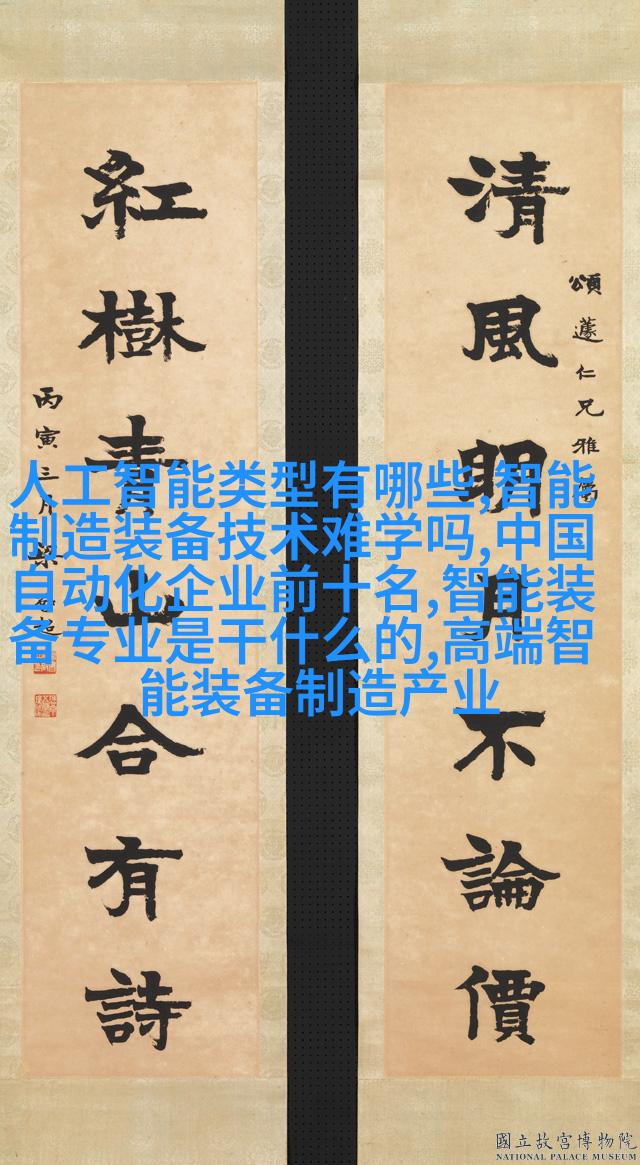 清風朙月不論價
頌蘧仁兄雅屬
紅樹青山合有詩
丙寅三月梁啟超
人工智能类型有哪些,智能
制造装备技术难学吗,中国
自动化企业前十名,智能装
备专业是干什么的,高端智
能装备制造产业
國立故宮博物院
NATIONAL PALACE MUSEUM